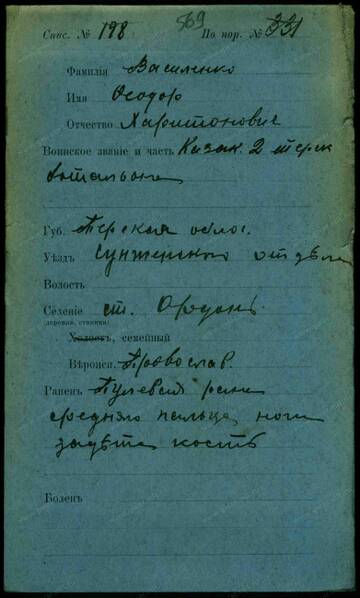 Спис. № 198 569 По пор. № 331
Фамилія Василенко
Имя Ѳеодор
Отчество Харитонович
Воинское званіе и часть Казак. 2 терск
батальона
Губ. Терская облос.
Уѣздъ Сунженского отдѣла
Волость
Селеніе ст. Ордонъ
(деревня, станица)
Холостъ, семейный
Вѣроисп. Православ.
Раненъ Пулевая рана
средняго пальца ноги
задѣта кость
Боленъ